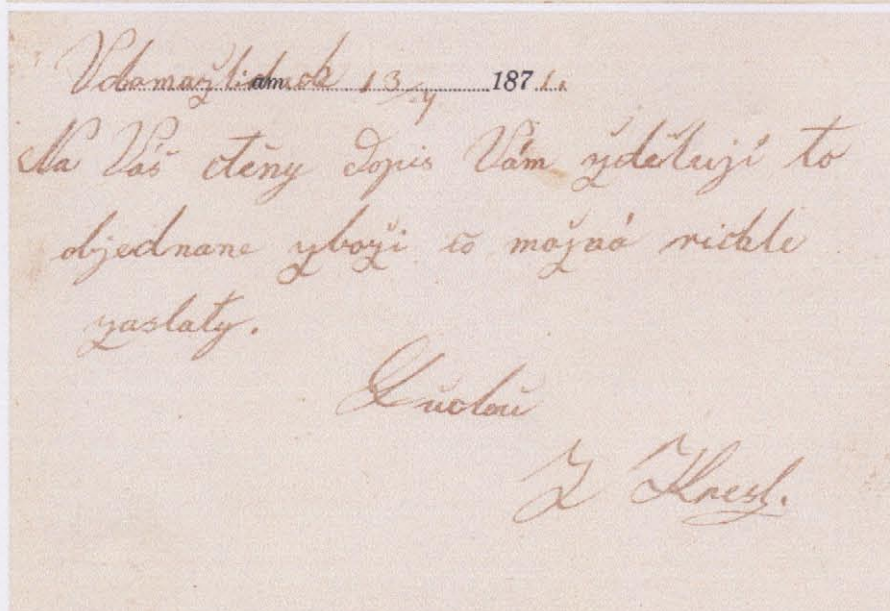 Vdomažlicách am 13/4 1871.
Na Váš ctěny Dopis Vám zdělují to
objednane zboži co možná richle
zaslaty.
Z úctou
J Knesl.